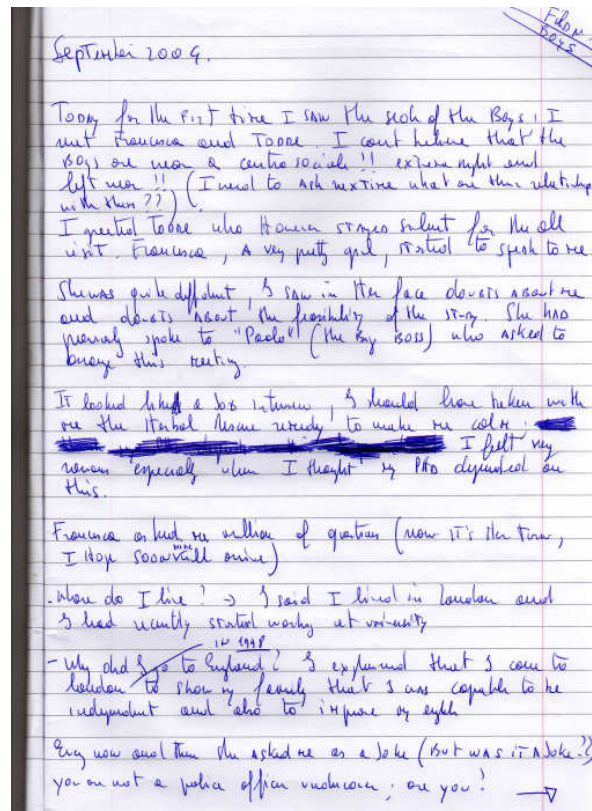 BOYS
September 2009.
Today for the first time I saw the of the Boys; I
met Francesca and Todde. I cant believe that the
Boys are near a centro sociale !! extreme right and
left near !! (I need to ask next time what are their relationship
with them ??)
I greeted Todde who However stayed for the all
visit. Francesca, A very pretty girl, started to speak to me.
She was quite diffident, I saw in Her face doubts About me
and doubts About the feasibility of the study. She HAD
previously spoke to "Paolo" (the Big Boss) who Asked to
arrange this meeting.
It looked like a Job interview, I should have taken with
me the Herbal rescue remedy to make me calm.
I felt very
nervous especially when I thought my PhD depended on
this.
Francesca asked me million of question (now it's Her turn,
I Hope soon will arrive)
mine
- Where do I live? → I said I lived in London and
I had recently started working at university
in 1998
- Why did I go to England? I explained that I came to
London to show my family that I was capable to be
independent and also to improve my
Every now and then she asked me as a Joke (But was it A Joke?)
you are not a police officer undercover, are you?